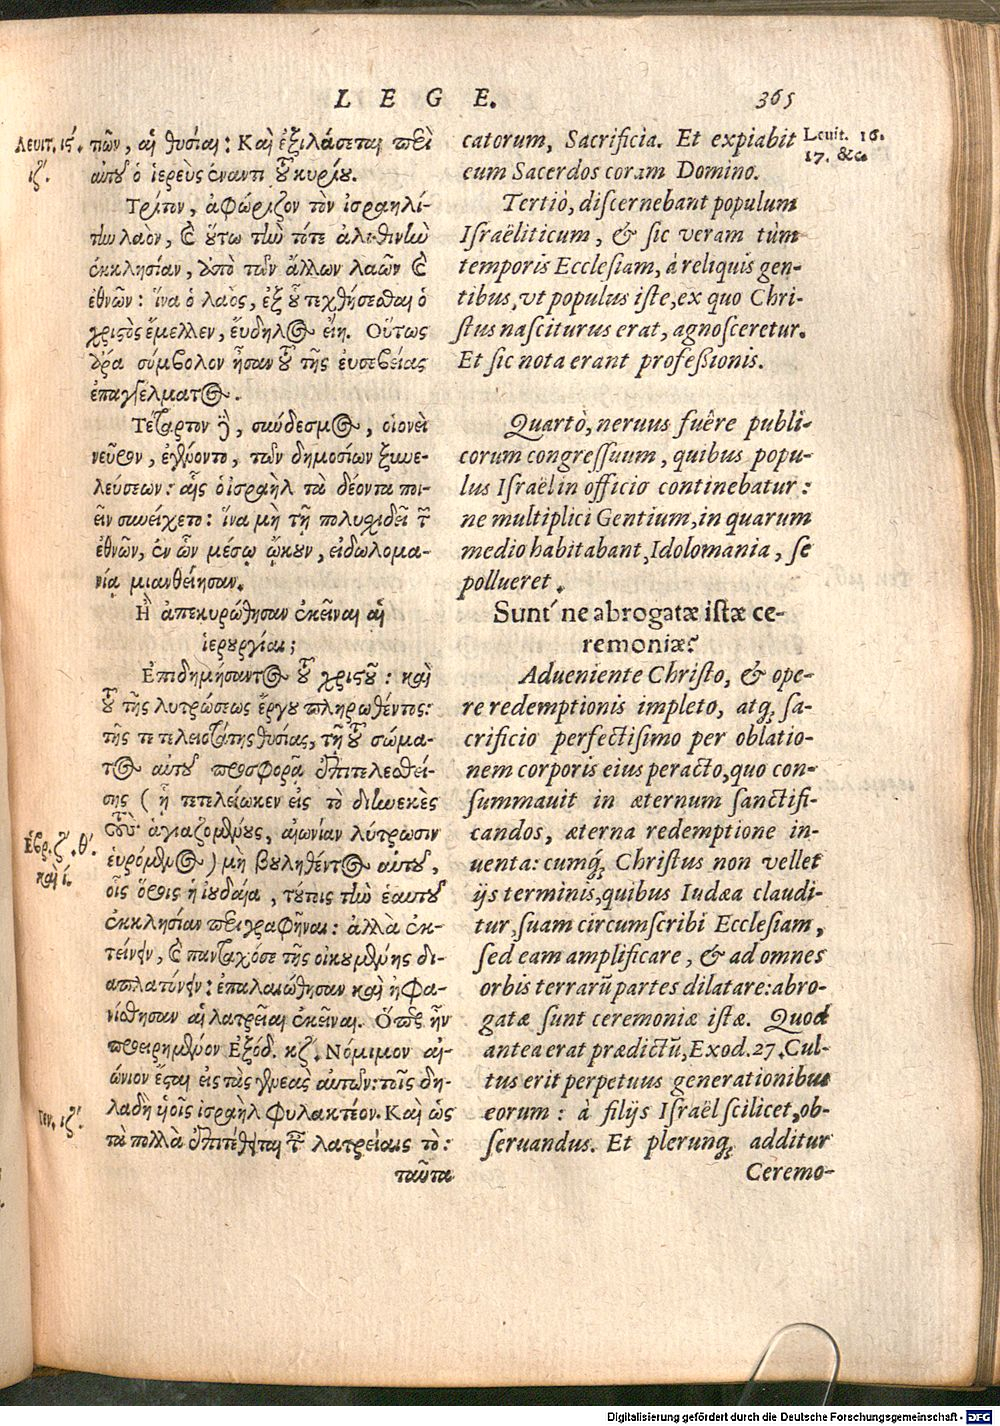 LEGE.
365
Λευιτ. ιϛ΄.
ιζ΄.
τιῶν, αἱ θυσίαι: Καὶ ἐξιλάσεται περὶ
αὐτοῦ ὁ ἱερεὺς ἐναντι τοῦ κυρίου.
Τρίτον, ἀφώριζον τὸν ἰσραηλί-
την λαὸν, καὶ οὕτω τὴν τότε ἀληθινὴν
ἐκκλησίαν, ἀπὸ τῶν ἄλλων λαῶν καὶ
ἐθνῶν: ἵνα ὁ λαὸς, ἐξ οὗ τεχθήσεσθαι ὁ
χριστὸς ἔμελλεν, ἔυδηλος εἴη. Οὕτως
ἄρα σύμβολον ἦσαν τοῦ τῆς ἐυσεβείας
ἐπαγγέλματος.
Τέταρτον δὲ, σύνδεσμος, οἱονεὶ
νεῦρον, ἐγένοντο, τῶν δημοσίων ξυνε-
λεύσεων: αἷς ὁ ἰσραὴλ τὰ δέοντα ποι-
εῖν συνείχετο: ἵνα μὴ τῇ πολυειδεῖ τῶν
ἐθνῶν, ἐν ὧν μέσῳ ᾤκουν, εἰδωλομα-
νίᾳ μιανθείησαν.
Ἢ ἀπεκυρώθησαν ἐκεῖναι αἱ
ἱερουργίαι;
Ἐπιδημήσαντος τοῦ χριστοῦ: καὶ
τοῦ τῆς λυτρώσεως ἔργου πληρωθέντος:
τῆς τε τελειοτάτης θυσίας, τῇ τοῦ σώμα-
τος αὐτοῦ προσφορᾷ ἐπιτελεσθεί-
σης (ᾗ τετελείωκεν εἰς τὸ διηνεκὲς
τοὺς ἁγιαζομένους, αἰωνίαν λύτρωσιν
εὑρόμενος) μὴ βουληθέντος αὐτοῦ,
οἷς ὅροις ἡ ἰουδαία, τούτοις τὴν ἑαυτοῦ
ἐκκλησίαν περιγραφῆναι: ἀλλὰ ἐκ-
τείνειν, καὶ πανταχόσε τῆς οἰκουμένης δι-
απλατύνειν: ἐπαλαιώθησαν καὶ ἠφα-
νίσθησαν αἱ λατρεῖαι ἐκεῖναι. Ὅπερ ἦν
προειρημένον Ἐξόδ. κζ΄. Νόμιμον αἰ-
ώνιον ἔσται εἰς τὰς γενεὰς αὐτῶν: τοῖς δη-
λαδὴ υἱοῖς ἰσραὴλ φυλακτέον. Καὶ ὡς
τὰ πολλὰ ἐπιτέθειται τῶν λατρείαις τό:
ταῦτα
Ἑβρ. ζ΄. θ΄.
καὶ ι.
Γεν. ιζ΄.
catorum, Sacrificia. Et expiabit
eum Sacerdos coram Domino.
Leuit. 16.
17. &c.
Tertiò, discernebant populum
Israëliticum, & sic veram tùm
temporis Ecclesiam, à reliquis gen-
tibus, vt populus iste, ex quo Chri-
stus nasciturus erat, agnosceretur.
Et sic nota erant professionis.
Quartò, neruus fuêre publi-
corum congressuum, quibus popu-
lus Israël in officio continebatur:
ne multiplici Gentium, in quarum
medio habitabant, Idolomania, se
pollueret.
Sunt´ne abrogatæ istæ ce-
remoniæ?
Adueniente Christo, & ope-
re redemptionis impleto, atq; sa-
crificio perfectissimo per oblatio-
nem corporis eius peracto, quo con-
summauit in æternum sanctifi-
candos, æterna redemptione in-
uenta: cumq; Christus non vellet
ijs terminis, quibus Iudæa claudi-
tur, suam circumscribi Ecclesiam,
sed eam amplificare, & ad omnes
orbis terrarū partes dilatare: abro-
gatæ sunt ceremoniæ istæ. Quod
antea erat prædictū, Exod. 27. Cul-
tus erit perpetuus generationibus
eorum: à filijs Israël scilicet, ob-
seruandus. Et plerunq; additur
Ceremo-
Digitalisierung gefördert durch die Deutsche Forschungsgemeinschaft - DFG